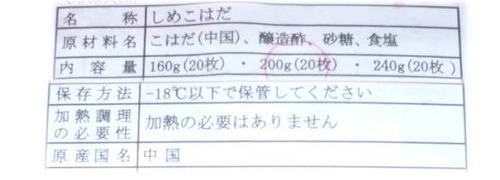 名称 しめこはだ
原材料名 こはだ(中国)、醸造酢、砂糖、食塩
内容量 160g(20枚)・200g(20枚)・240g(20枚)
保存方法 -18℃以下で保管してください
加熱調理
の必要性 加熱の必要はありません
原産国名 中国